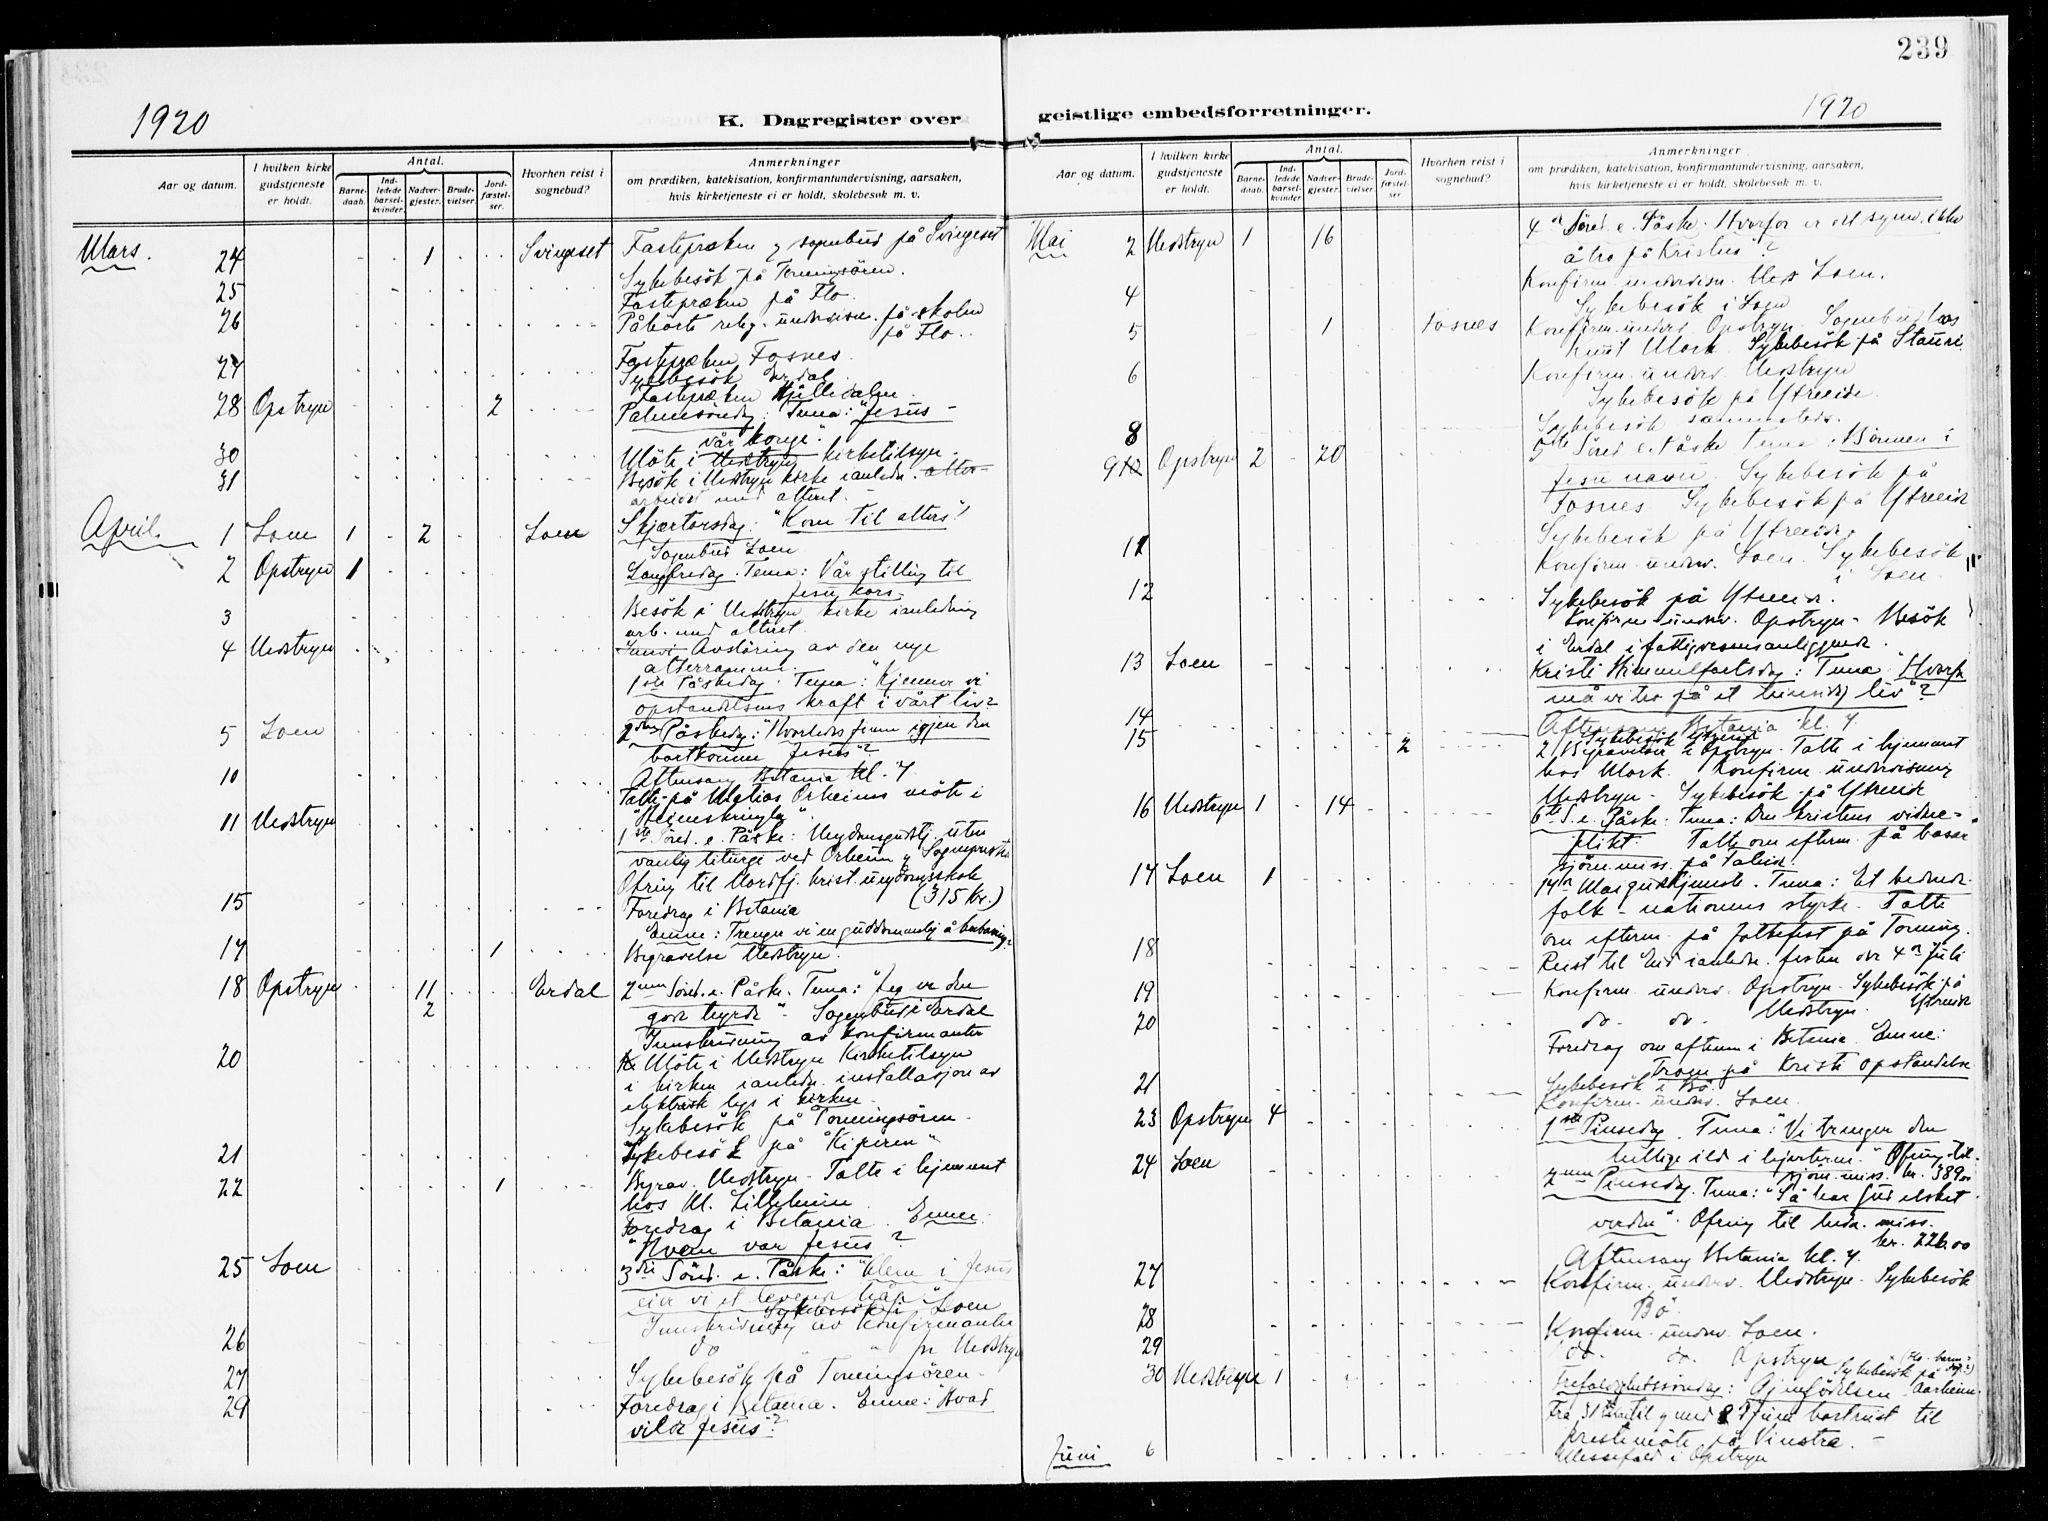 239
1920
K. Dagregister over
Aar og datum.
I hvilken kirke gudstjeneste er holdt.
Antal.
Barne-daab.
Ind-ledede barsel-kvinder.
Nadver-gjester.
Brude-vielser.
Jord-fæstel-ser.
Hvorhen reist i sognebud?
Anmerkninger
om prædiken, katekisation, konfirmantundervisning, aarsaken,
hvis kirketjeneste ei er holdt, skolebesøk m. v.
Mars. 24 1 Svingeset Fastepræken og sognebud på Svingeset
25 Sykebesök på Tonningsören.
26 Fastepræken på Flo.
Påhörte relig. undervisn. på skolen
på Flo.
27 Fastepræken Fosnes.
Sykebesök Erdal
Fastepræken Hjelledalen
28 Opstryn 2 Palmesöndag: Tema: "Jesus -
vår konge".
30 Möte i Nedstryn kirketilsyn.
31 Besök i Nedstryn kirke i anledn.
arbeidet med alteret.
April. 1 Loen 1 2 Loen Skjærtorsdag: "Kom til alters!
Sognebud Loen
2 Opstryn 1 Langfredag: Tema: Vår stilling til
Jesu kors.
3 Besök i Nedstryn kirke i anledning
arb. med alteret.
4 Nedstryn Avsløring av den nye
alterramme.
1ste Påskedag. Tema: "Kjenner vi
opstandelsens kraft i vårt liv?
5 Loen 2den Påskedag: "Hvorledes finne igjen den
bortkomne Jesus"?
Aftensang Betania kl. 7
10 Talte på Matias Orheims möte i
"Heimskringla".
11 Nedstryn 1ste Sönd. e. Påske: Ungdomsgudstj. uten
vanlig liturgi ved Orheim og Sognepresten
Ofring til Nordfj. krist. ungdomsskole
(315 kr.)
15 Foredrag i Betania
Emne: Trenger vi en guddommelig åbenbaring?
17 1 Begravelse Nedstryn.
18 Opstryn 11 Erdal 2nen Sönd. e. Påske. Tema: "Jeg er den
2 gode hyrde". Sognebud i Erdal
Innskrivning av konfirmanter
20 Möte i Nedstryn Kirketilsyn
i kirken i anledn. installasjon av
elektrisk lys i kirken.
Sykebesök på Tonningsören.
21 Sykebesök på "Kiperen"
22 1 Begrav. Nedstryn. Talte i hjemmet
hos M. Lilleheim
Foredrag i Betania. Emne:
"Hvem var Jesus?
25 Loen 3die Sönd. e. Påske: "Alene i Jesus
eier vi et levende håp"
Sykebesök i Loen
26 Innskrivning av konfirmanter
do " " Nedstryn
27 Sykebesök på Tonningsören.
29 Foredrag i Betania. Emne: "Hvad
vilde Jesus"?
geistlige embedsforretninger.
1920
Aar og datum.
I hvilken kirke gudstjeneste er holdt.
Antal.
Barne-daab.
Ind-ledede barsel-kvinder
Nadver-gjester.
Brude-vielser.
Jord-fæstel-ser
Hvorhen reist i sognebud?
Anmerkninger
om prædiken, katekisation, konfirmantundervisning, aarsaken,
hvis kirketjeneste ei er holdt, skolebesøk m. v.
Mai 2 Nedstryn 1 16 4de Sönd. e. Påske. Hvorfor er det synd, ikke
å tro på Kristus?
4 Konfirm. undervisn. Loen.
Sykebesök i Loen
5 1 Fosnes Konfirm. underv. Opstryn. Sognebud hos
Knut Mork. Sykebesök på Stauri
6 Konfirm. underv. Nedstryn
Sykebesök på Ytreeide.
8 Sykebesök sammesteds.
9 Opstryn 2 20 5te Sönd. e. Påske Tema: Bönnen i
Jesu navn. Sykebesök på
Fosnes Sykebesök på Ytreeide
Sykebesök på Ytreeide.
11 Konfirm. underv. Loen. Sykebesök
i Loen.
12 Sykebesök på Ytreeide.
Konfirm. underv. Opstryn. Besök
i Erdal i fattigvesensanliggende.
13 Loen Kristi Himmelfartsdag: Tema: "Hvorfor
må vi tro på et hinsidig liv"?
14 Aftensang Betania kl. 7
Sykebesök Ytreeide
15 2 2 Begravelser i Opstryn. Talte i hjemmet
hos Mork. Konfirm. undervisning
Nedstryn. Sykebesök på Ytreeide
16 Nedstryn 1 14 6te S. e. Påske. Tema: Den kristens vidne-
plikt. Talte om efterm. på basar
sjöm.miss. på Talvik
17 Loen 1 17de Maigudstjeneste. Tema: Et bedende
folk - nationens styrke. Talte
om efterm. på folkefest på Tonning.
18 Reist til Eid i anledn. festen der 4de Juli
19 Konfirm. underv. Opstryn. Sykebesök på
Ytreeide
20 do. do. Nedstryn.
Foredrag om aftenen i Betania. Emne:
Troen på Kristi opstandelse
21 Sykebesök i Bö.
Konfirm. underv. Loen.
23 Opstryn 4 1ste Pinsedag. Tema: "Vi trenger den
hellige ild i hjerterne." Ofring til
sjöm.miss. kr. 389.00
24 Loen 2nen Pinsedag. Tema: "Så har Gud elsket
verden". Ofring til hedn. miss.
kr. 226.00
Aftensang Betania kl. 7.
27 Konfirm. underv. Nedstryn. Sykebesök
Bö
28 Konfirm. underv. Loen.
29 do. do. Opstryn
30 Nedstryn 1 Trefoldighetssöndag: Gjenfödelsen Sykebesök på Aarheim.
Fra 31te Mai til og med Juni bortreist til
prestemöte på Vinstra.
Juni 6 Messefald i Opstryn